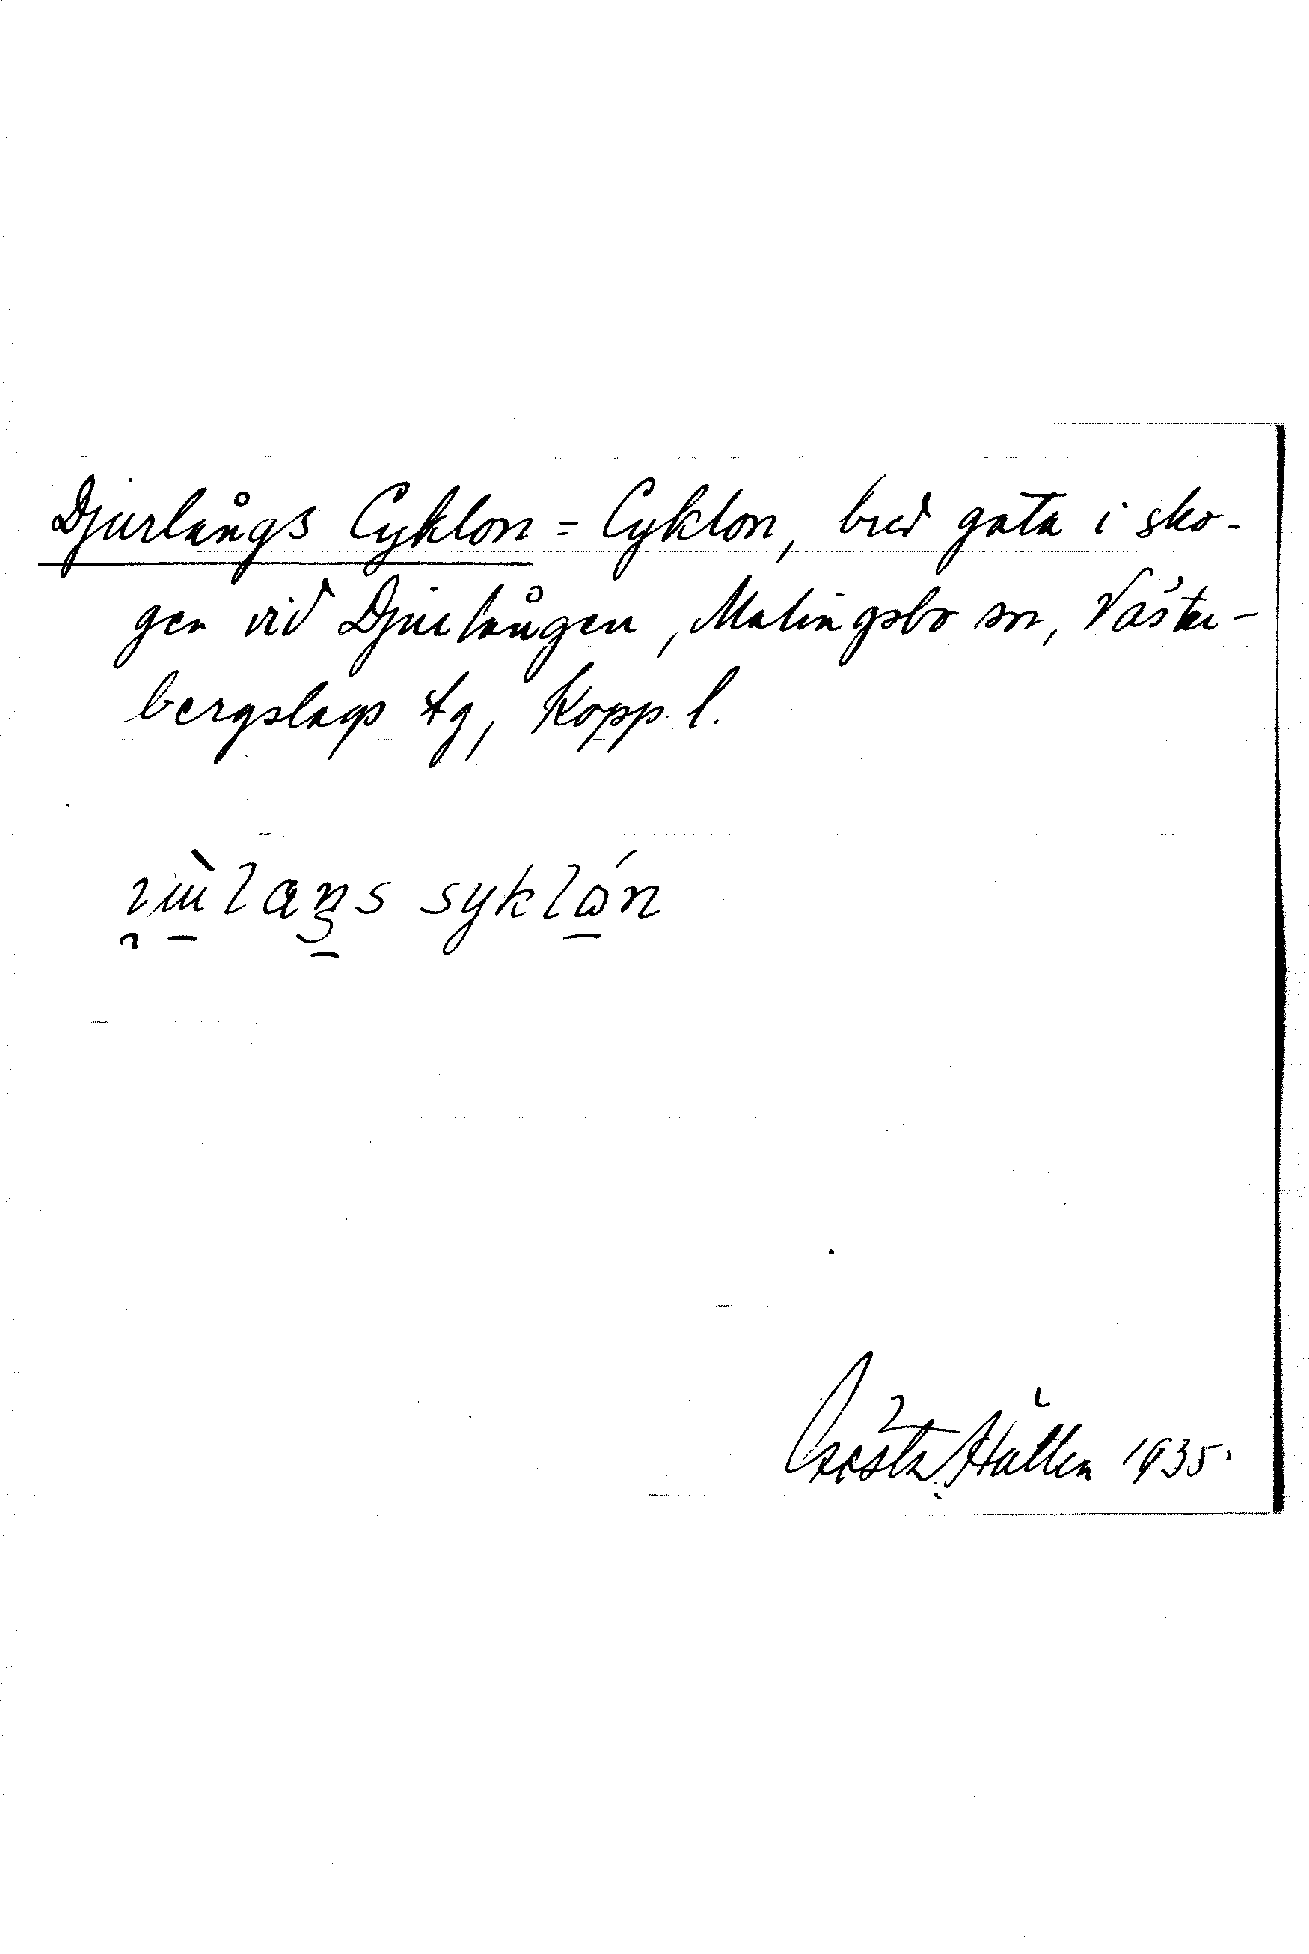 Djurlångs Cyklon = Cyklon, bred gata i sko-
gen vid Djurlången, Malingsbo sn, Väster-
bergslags tg, Kopp. l.
syklón
Gösta Hallén 1935.